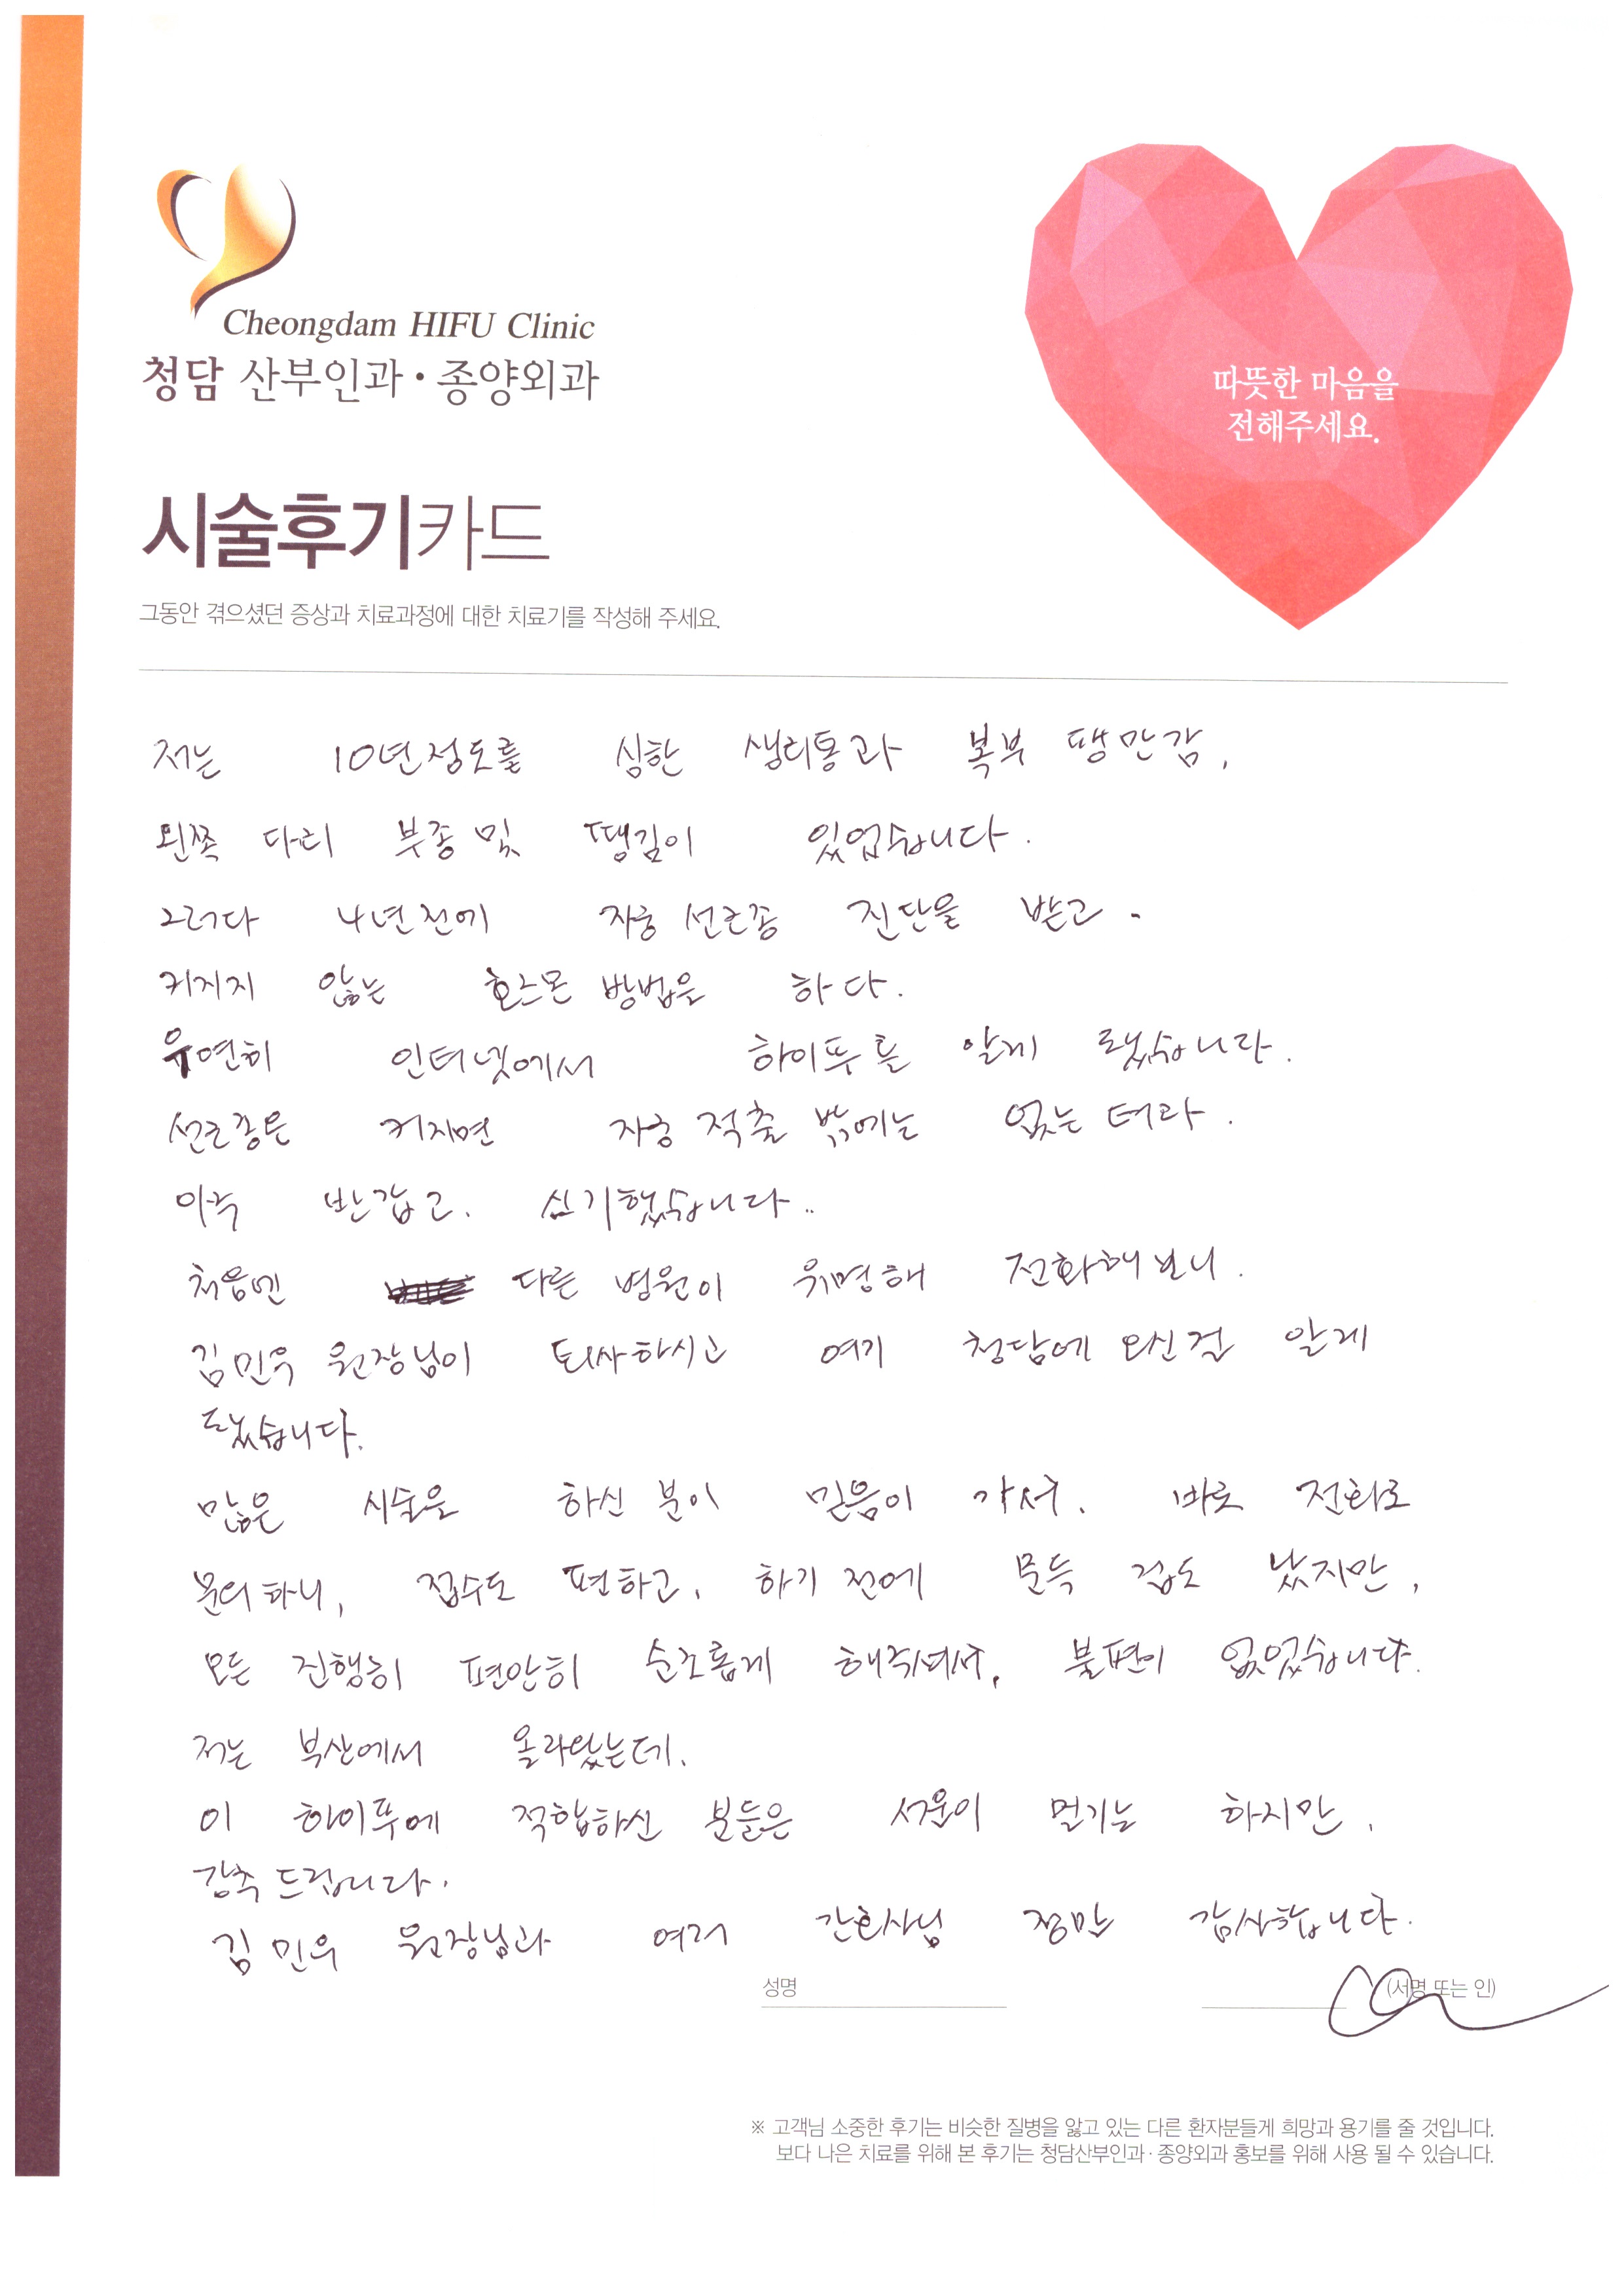 Cheongdam HIFU Clinic
청담 산부인과·종양외과
따뜻한 마음을
전해주세요.
시술후기카드
그동안 겪으셨던 증상과 치료과정에 대한 치료기를 작성해 주세요.
저는 10년정도를 심한 생리통과 복부 땡만감,
왼쪽 다리 부종 및 땡김이 있었습니다.
그러다 4년전에 자궁 선근종 진단을 받고.
커지지 않는 호르몬 방법을 하다.
우연히 인터넷에서 하이푸를 알게 됐습니다.
선근종은 커지면 자궁 적출 밖에는 없는 터라.
아주 반갑고. 신기했습니다..
처음엔 다른 병원이 유명해 전화해보니.
김민우 원장님이 퇴사하시고 여기 청담에 오신걸 알게
됐습니다.
많은 시술을 하신 분이 믿음이 가서. 바로 전화로
문의하니, 접수도 편하고. 하기 전에 문득 겁도 났지만,
모든 진행히 편안히 순조롭게 해주셔서, 불편이 없었습니다.
저는 부산에서 올라왔는데.
이 하이푸에 적합하신 분들은 서울이 멀기는 하지만,
강추 드립니다.
김민우 원장님과 여러 간호사님 정말 감사합니다.
성명 (서명 또는 인)
※ 고객님 소중한 후기는 비슷한 질병을 앓고 있는 다른 환자분들게 희망과 용기를 줄 것입니다.
보다 나은 치료를 위해 본 후기는 청담산부인과·종양외과 홍보를 위해 사용 될 수 있습니다.